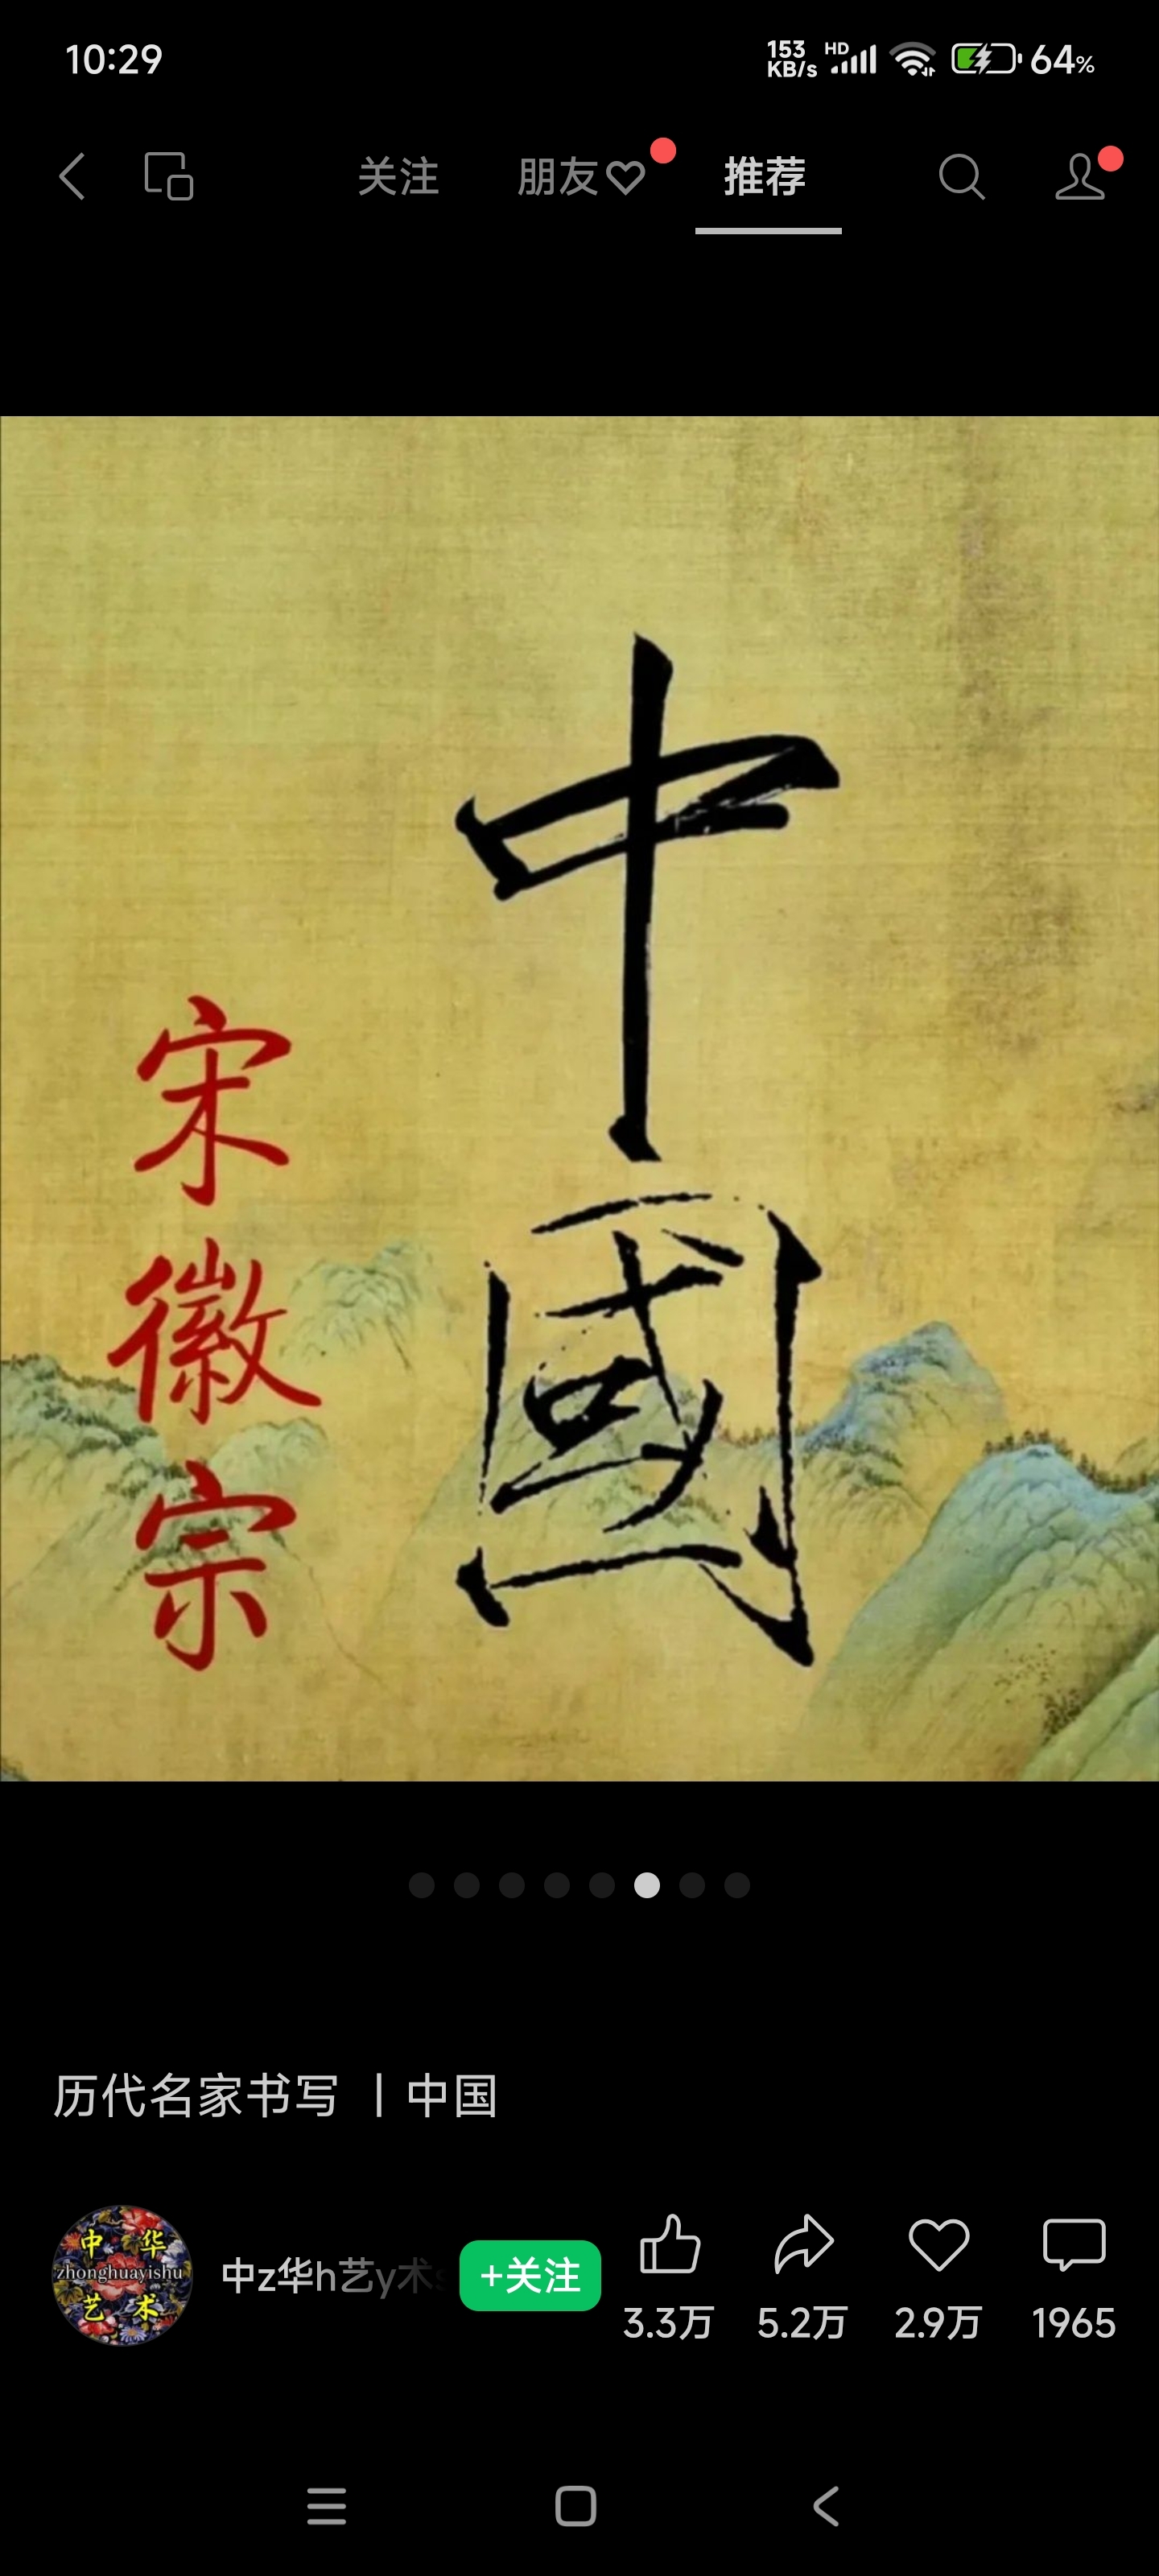 10:29
153 KB/s HD 64%
关注 朋友 推荐
中國
宋徽宗
历代名家书写 丨中国
中华
zhonghuayishu
艺术
中z华h艺y术s
+关注
3.3万 5.2万 2.9万 1965